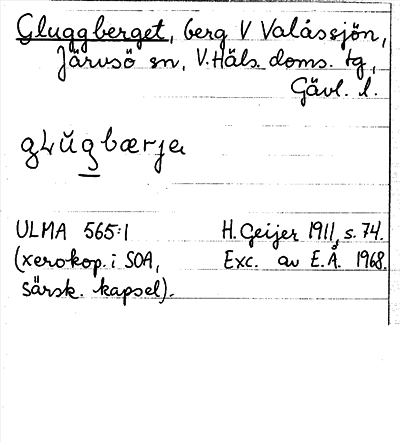 Gluggberget, berg V Valåssjön,
Järvsö sn, V. Häls. doms. tg,
Gävl. l.
gLŭgbærjeͅ
ULMA 565:1 H. Geijer 1911, s. 74.
(xerokop. i SOA, Exc. av E.Å. 1968.
särsk. kapsel).